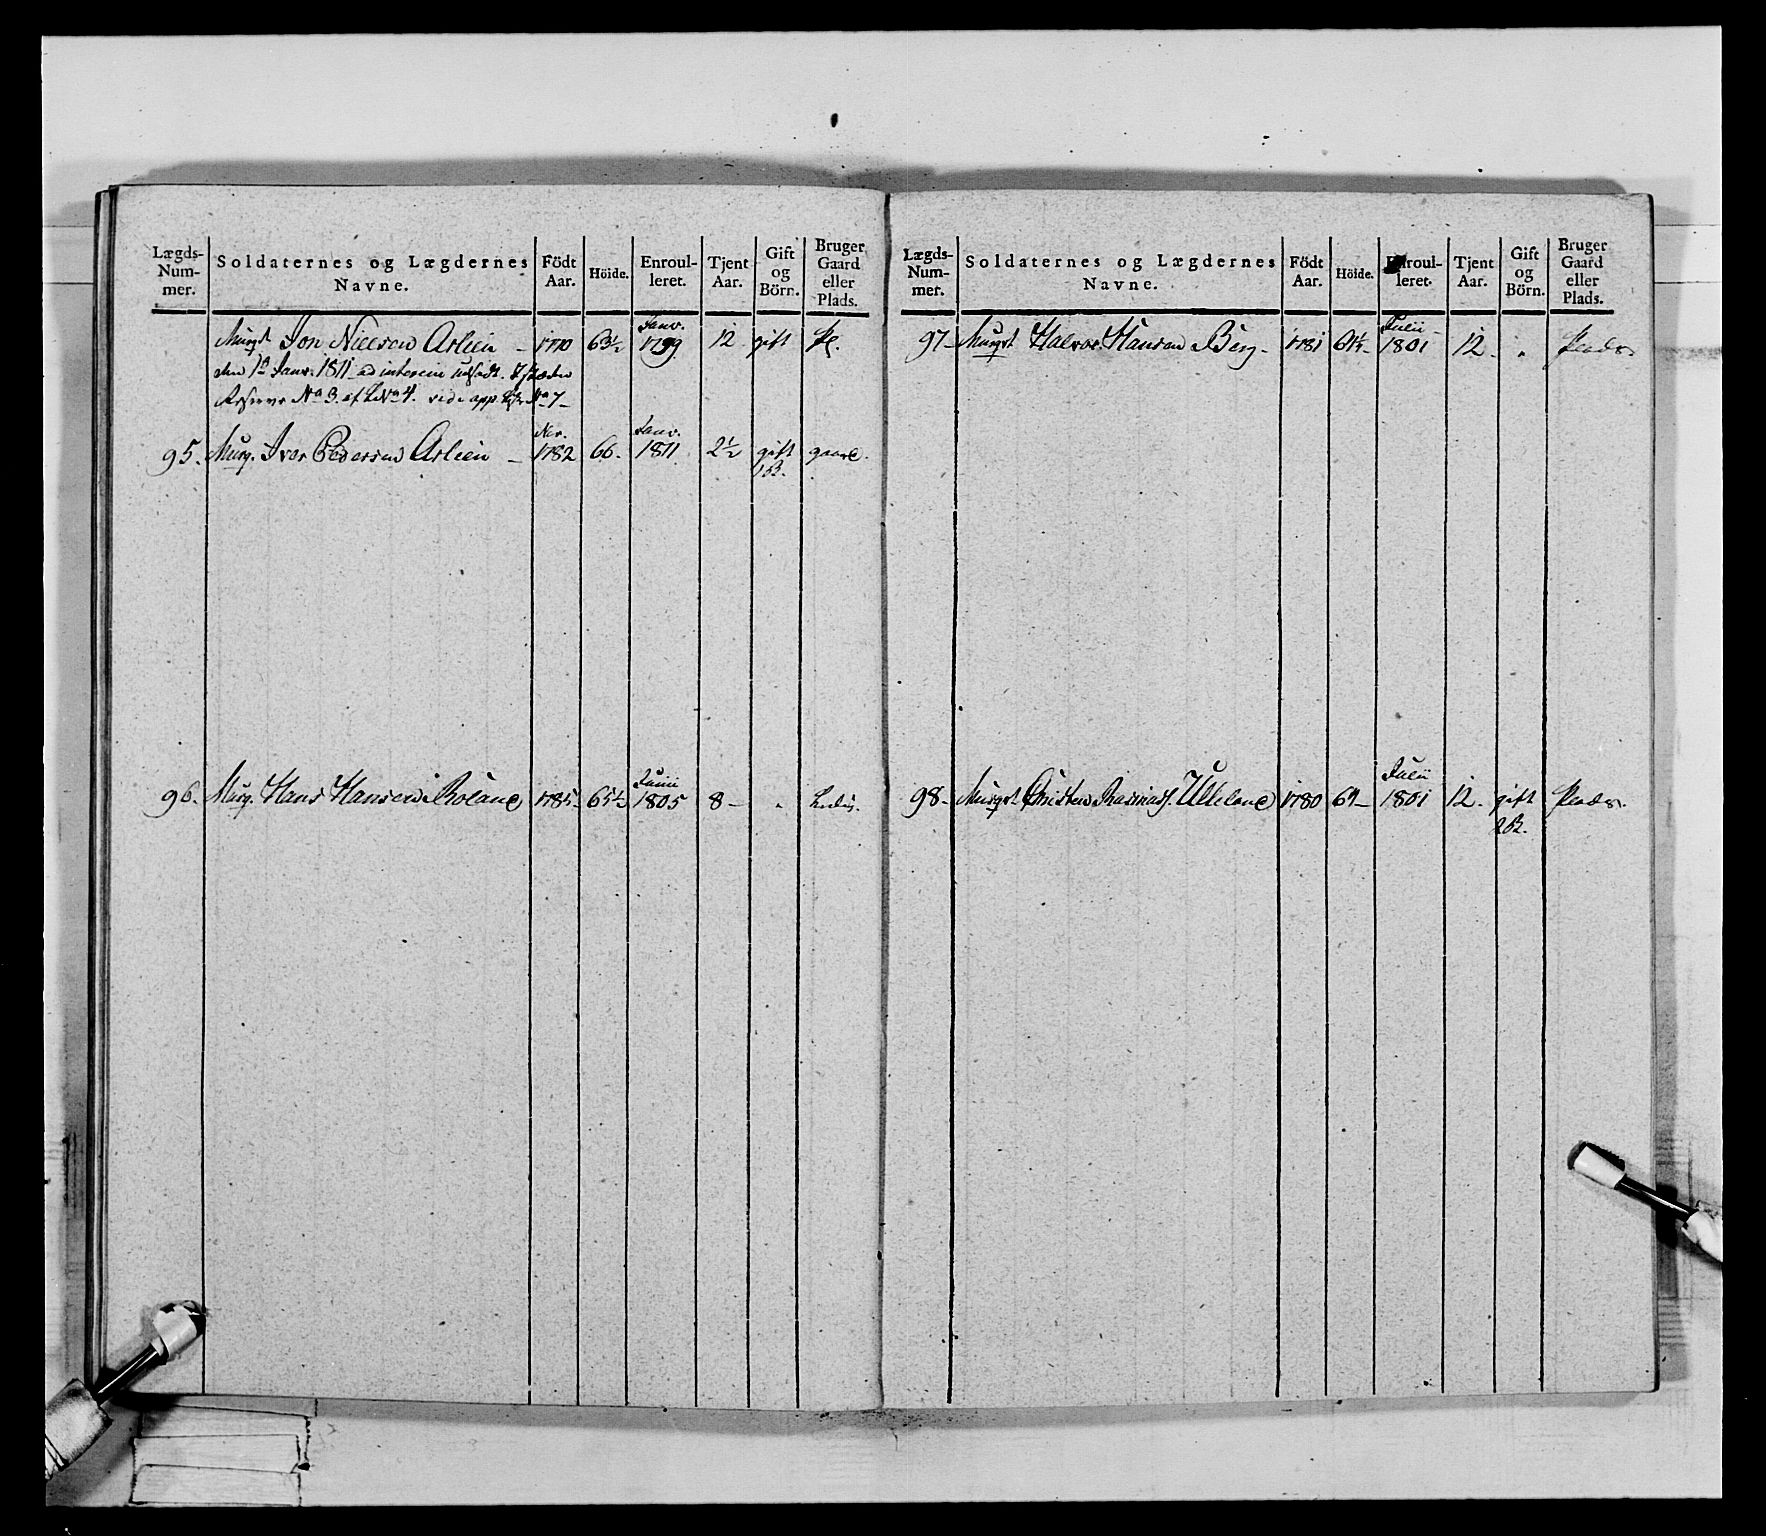 Lægds-Num-mer. Soldaternes og Lægdernes Navne. Födt Aar. Höide. Enroul-leret. Tjent Aar. Gift og Börn. Bruger Gaard eller Plads.
Musqt Jon Nielsen Arlien – 1770 63½ Janv. 1799 12 gift Pl.
den 1ste Janv. 1811 ad interim udsadt.
Reserve No 3. af No 4. vide app. No 7 –
95. Musq. Iver Pedersen Arlien – Nov. 1782 66. Janv. 1811 2½ gift 1 B. gaard.
96. Musq. Hans Hansen Roland 1785 65½ Junii 1805 8 – „ Ledig.
Lægds-Num-mer. Soldaternes og Lægdernes Navne. Födt Aar. Höide. Enroul-leret. Tjent Aar. Gift og Börn. Bruger Gaard eller Plads.
97 – Musqt Halvor Hansen Berg – 1781 Julii 1801 12. „ Plads.
98 – Musqt Christen Rasmus. Ulleland 1780 Julii 1801 12. gift 2 B. Plads.